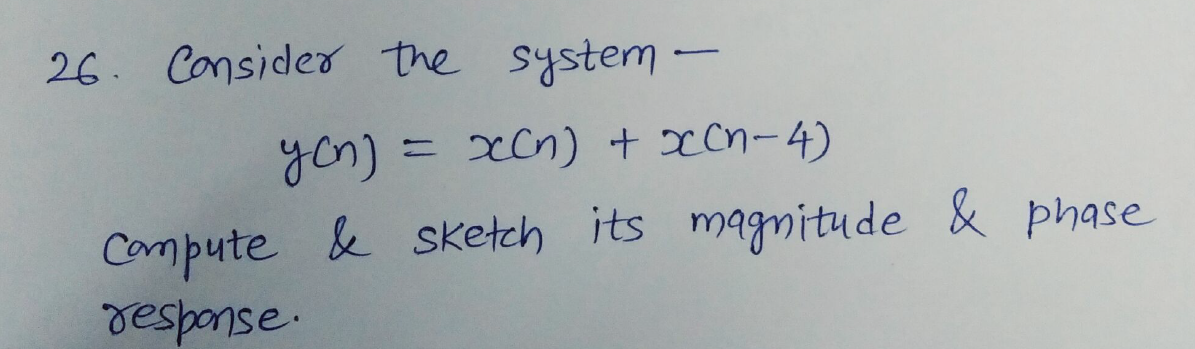 26. Consider the system –
y(n) = x(n) + x(n-4)
Compute & sketch its magnitude & phase
response.